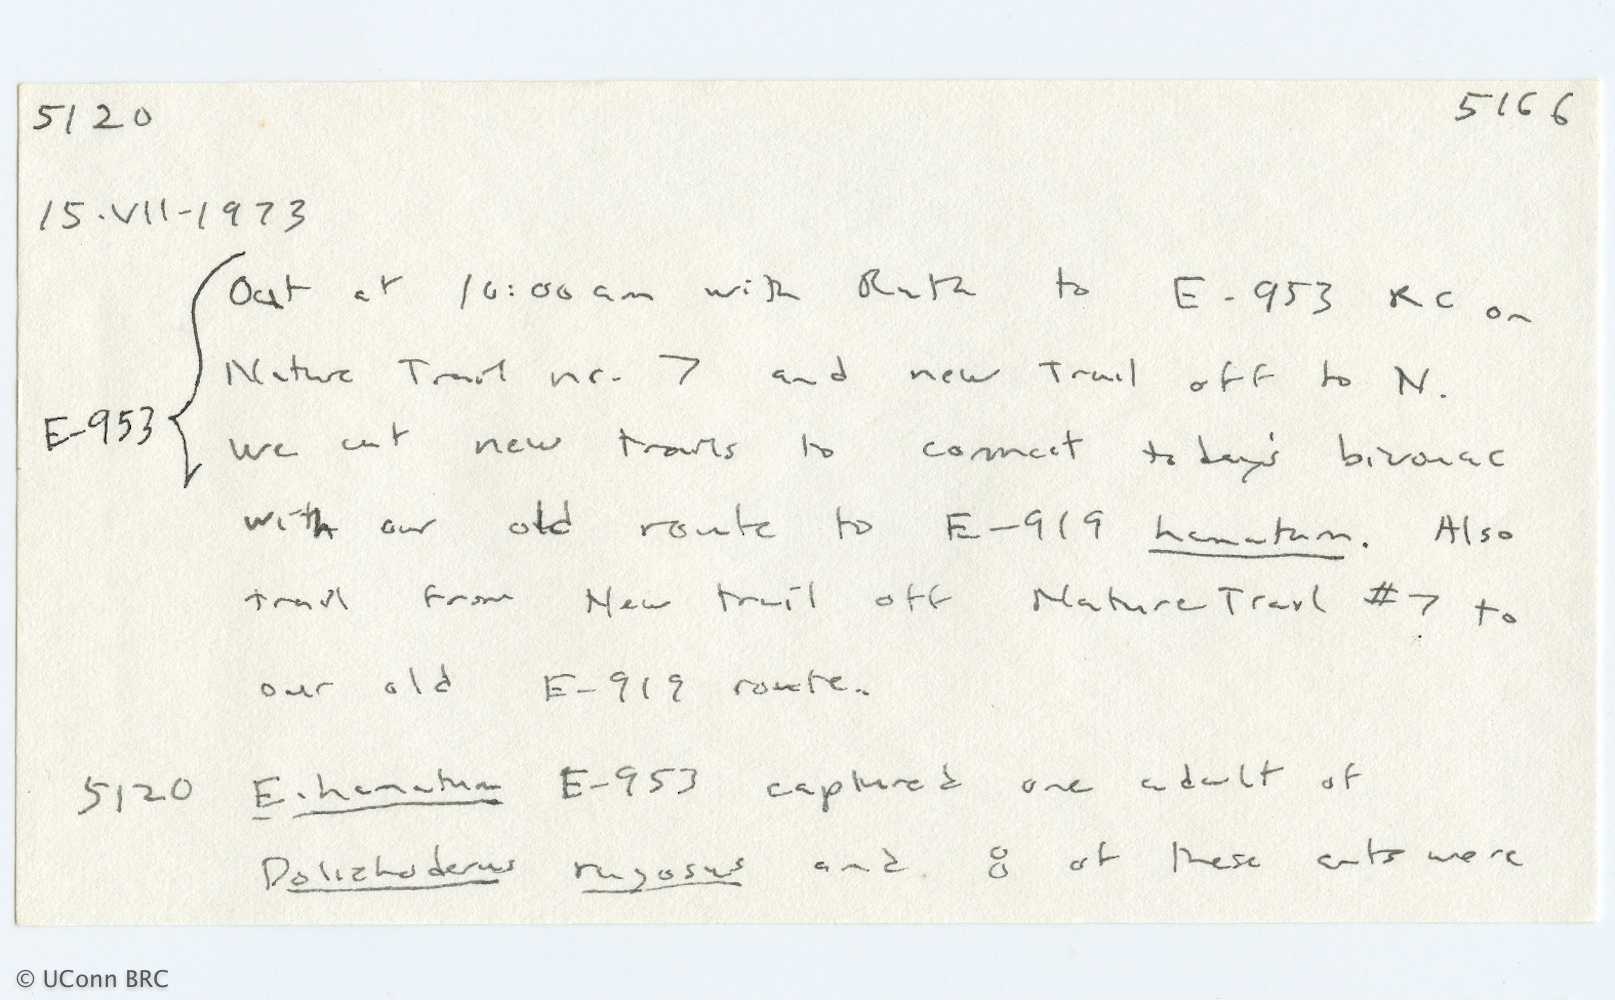 5120 5166
15.VII-1973
Out at 10:00 am with Ruth to E-953 RC on
Nature Trail nr. 7 and new Trail off to N.
E-953
We cut new trails to connect today's bivouac
with our old route to E-919 hamatum. Also
trail from New trail off Nature Trail #7 to
our old E-919 route.
5120 E. hamatum E-953 captured one adult of
Dolichoderus rugosus and 8 of these ants were
© UConn BRC